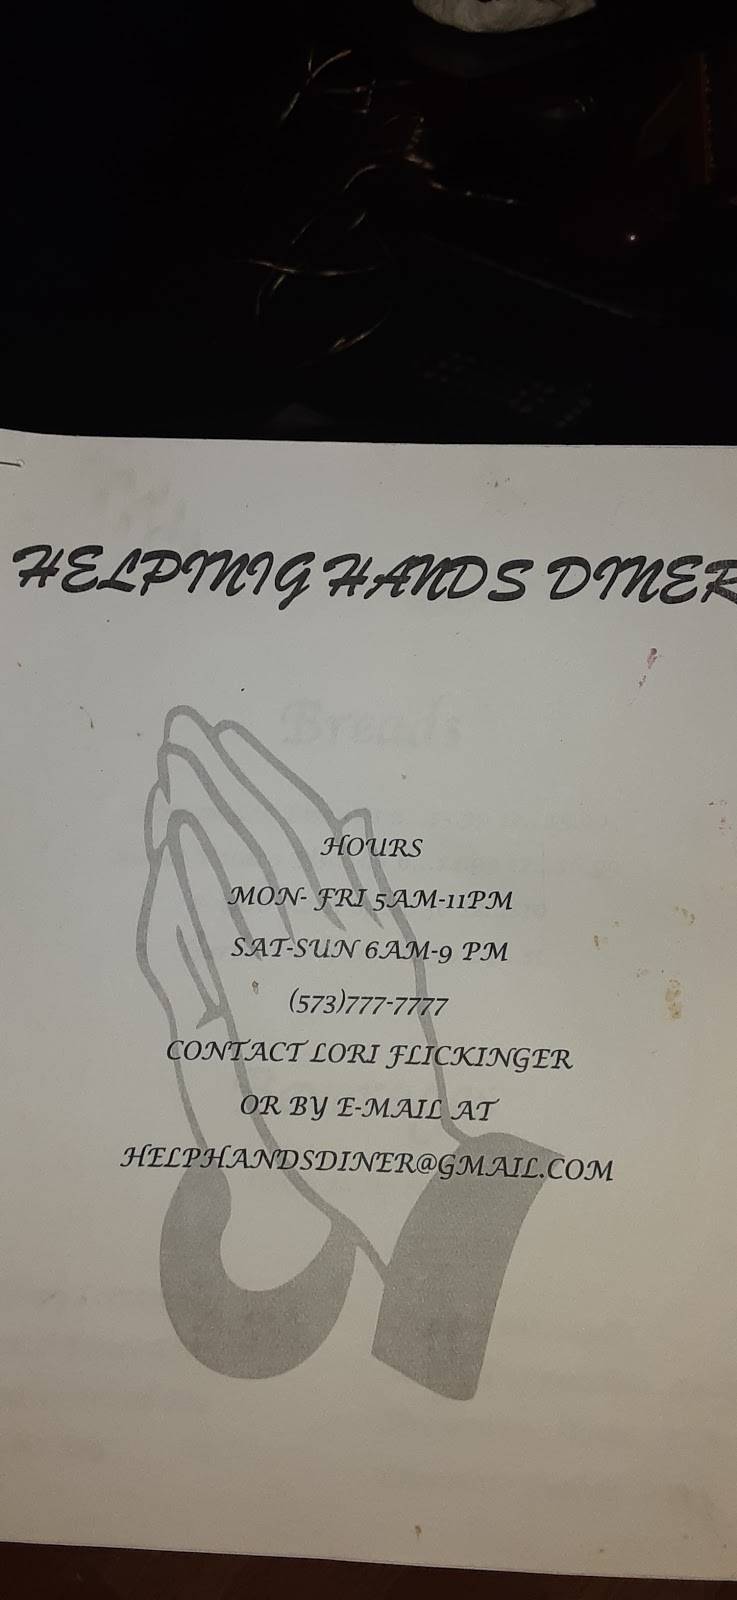 HELPINIG HANDS DINER
Breads
HOURS
MON- FRI 5AM-11PM
SAT-SUN 6AM-9 PM
(573)777-7777
CONTACT LORI FLICKINGER
OR BY E-MAIL AT
HELPHANDSDINER@GMAIL.COM